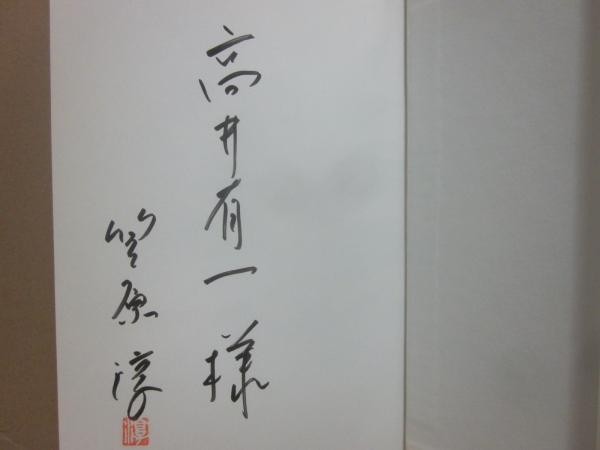 高井有一様
笠原淳
淳